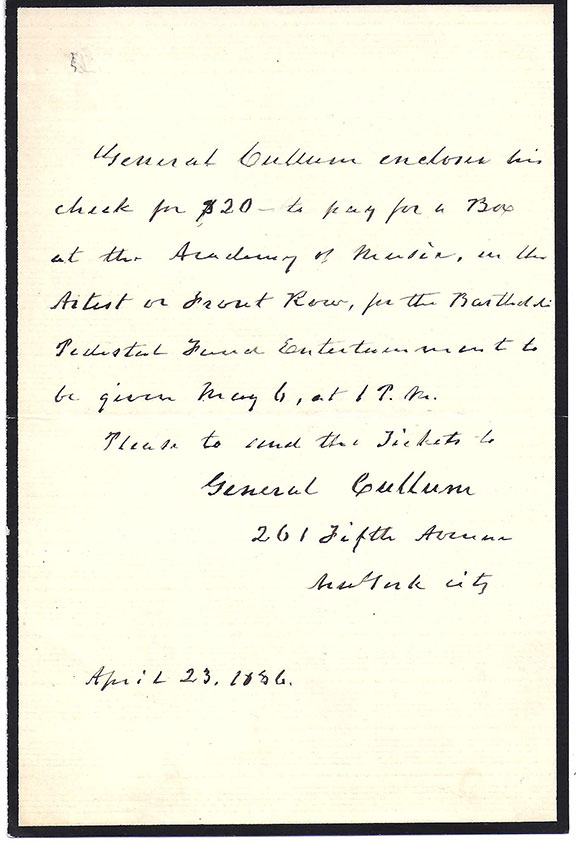 General Cullum encloses his
check for $20 - to pay for a Box
at the Academy of Music, in the
Artist or Front Row, for the Bartholdi
Pedestal Fund Entertainment to
be given May 6, at 1 P.M.
Please to send the Tickets to
General Cullum
261 Fifth Avenue
New York City
April 23. 1886.